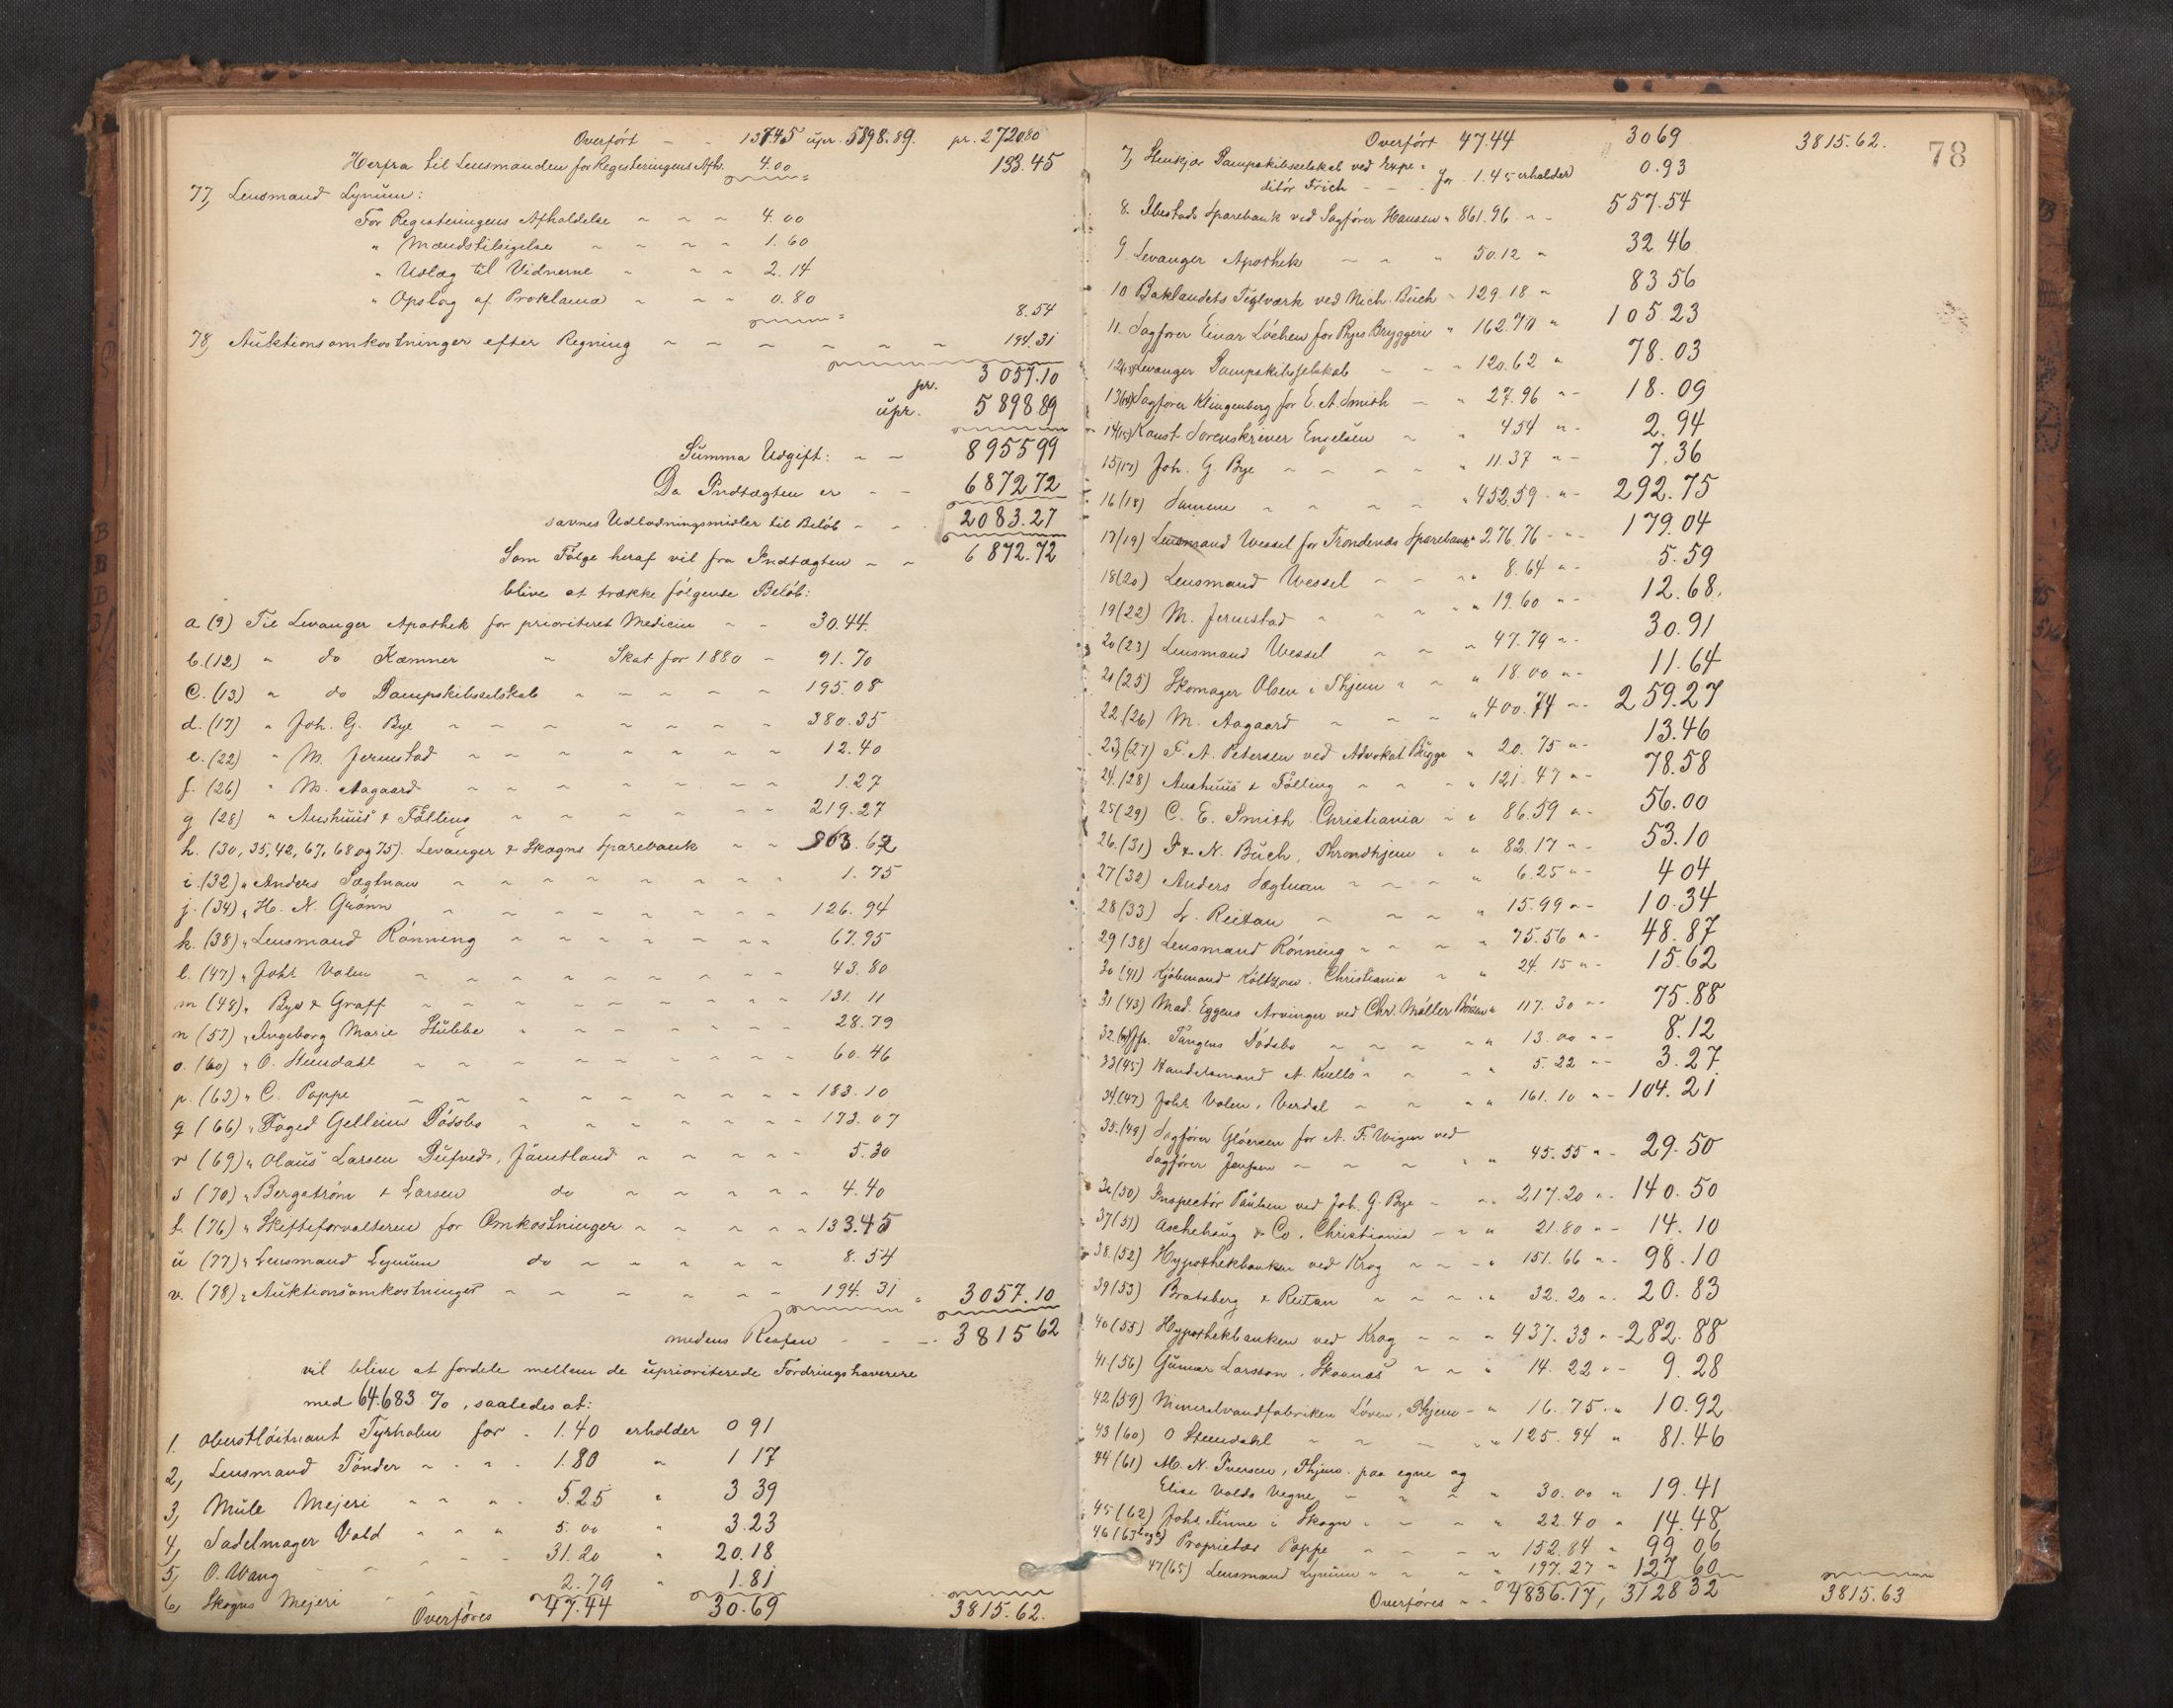 Overført - - 137.45 upr. 5898.89. pr. 2720.80
Herfra til Lensmanden for Registeringens Afh. 4.00 133.45
77, Lensmand Lynum:
For Registeringens Afholdelse 4.00
" Mændstilsigelse 1.60
" Udlæg til Vidnerne 2.14
" Opslag af Proklama 0.80 8.54
78, Auktionsomkostninger efter Regning 194.31
pr. 3057.10
upr. 5898 89
Summa Udgift: 8955 99
Da Indtægten er 6872 72
savnes Udlodningsmidler til Beløb 2083.27
Som Følge heraf vil fra Indtægten 6872.72
blive at trække følgende Beløb:
a (9) Til Levanger Apothek for prioriteret Medicin 30.44
b. (12) " do Kæmner " Skat for 1880 91.70
c. (13) " do Dampskibsselskab 195.08
d. (17) " Joh. G. Bye 380.35
e. (22) " M. Jermstad 12.40
f. (26) " M. Aagaard 1.27
g (28) " Aushuus & Følling 219.27
h. (30, 35, 42, 67, 68 og 75). Levanger & Skogns Sparebank 863.62
i. (32) " Anders Sægtnan 1.75
j. (34) " H. N. Grønn 126.94
k. (38) " Lensmand Rönning 67.95
l. (47) " Johs Volen 43.80
m (48) " Bye & Graff 131.11
n (57) " Ingeborg Marie Stubbe 28.79
o. (60) " O. Stendahl 60.46
p. (63) " C. Poppe 183.10
q (66) " Foged Gelleins Dødsbo 173.07
r (69) " Olaus Larsen Dufved, Jämtland 5.30
s (70) " Bergström & Larsen do 4.40
t. (76) " Skifteforvalteren for Omkostninger 133.45
u (77) " Lensmand Lynum do 8.54
v. (78) " Auktionsomkostninger 194.31 = 3057.10
medens Resten 3815 62
vil blive at fordele mellem de uprioriterede Fordringshaverere
med 64.683 %, saaledes at:
1. Oberstløitnant Tyrholm for 1.40 erholder 0 91
2, Lensmand Tønder 1.80 " 1 17
3, Mule Mejeri 5.25 " 3 39
4, Sadelmager Vold 5.00 " 3.23
5, O. Wang 31.20 " 20.18
6, Skogns Mejeri 2.79 " 1.81
Overføres 47.44 30.69 3815.62.
78
Overført 47.44 3069 3815.62.
7, Stenkjær Dampskibsselskab ved Expe-
ditør Frich for 1.45 erholder 0.93
8. Ibestads Sparebank ved Sagfører Hansen " 861.96 557.54
9 Levanger Apothek " 50.12 32 46
10 Baklandets Teglværk ved Nich. Buch " 129.18 83 56
11. Sagfører Einar Löchen for Ryes Bryggeri " 162.70 105 23
12(13) Levanger Dampskibsselskab 120.62 78.03
13(14) Sagfører Klingenberg for E. A. Smith " 27.96 18.09
14(15) Konst. Sorenskriver Engelsen " 4.54 2.94
15(17) Joh. G. Bye " 11.37 7.36
16(18) Samme " 452.59 292.75
17(19) Lensmand Wessel for Trondenæs Sparebank " 276.76 179.04
18(20) Lensmand Wessel 8.64 5.59
19(22) M. Jermstad " 19.60 12.68.
20(23) Lensmand Wessel 47.79 30.91
21(25) Skomager Olsen i Thjem " 18.00 11.64
22.(26) M. Aagaard " 400.74 259.27
23,(27) F. A. Petersen ved Advokat Bugge " 20.75 13.46
24.(28) Aushuus & Følling " 121.47 78.58
25(29) C. E. Smith Christiania 86.59 56.00
26.(31) I & N. Buch, Throndhjem " 82.17 53.10
27(32) Anders Sægtnan " 6.25 4 04
28(33) L. Reitan " 15.99 10.34
29(38) Lensmand Rönning " 75.56 48.87
30(41) Kjøbmand Költzow. Christiania " 24.15 15.62
31(43) Mad. Eggens Arvinger ved Chr. Møller Börsen " 117.30 75.88
32.(44) Jfr. Tangens Dødsbo " 13.00 8.12
33(45) Handelsmand A. Kvello " 5.22 3.27
34(47) Johs Volen, Verdal " 161.10 104.21
35.(49) Sagfører Gløersen for A. F. Wigen ved
Sagfører Jenssen " 45.55 29.50
36(50) Inspectør Paulsen ved Joh. G. Bye 217.20 140.50
37(51) Aschehoug & Co, Christiania " 21.80 14.10
38.(52) Hypothekbanken ved Krog 151.66 98.10
39(53) Bratsberg & Reitan 32.20 20.83
40(55) Hypothekbanken ved Krog " 437.33 282.88
41.(56) Gunnar Larsson, Skonäs 14.22 9.28
42(59) Mineralvandfabriken Löven, Thjem " 16.75 10.92
43(60) O Stendahl " 125.94 81.46
44(61) M. N. Iversen, Thjem. paa egne og
Elise Volds Vegne " 30.00 19.41
45(62) Johs Tinne i Skogn " 22.40 14.48
46(63 Proprietær Poppe " 152.84 99 06
47(65) Lensmand Lynum " 197.27 127 60
Overføres 4836.17, 3128 32 3815.63